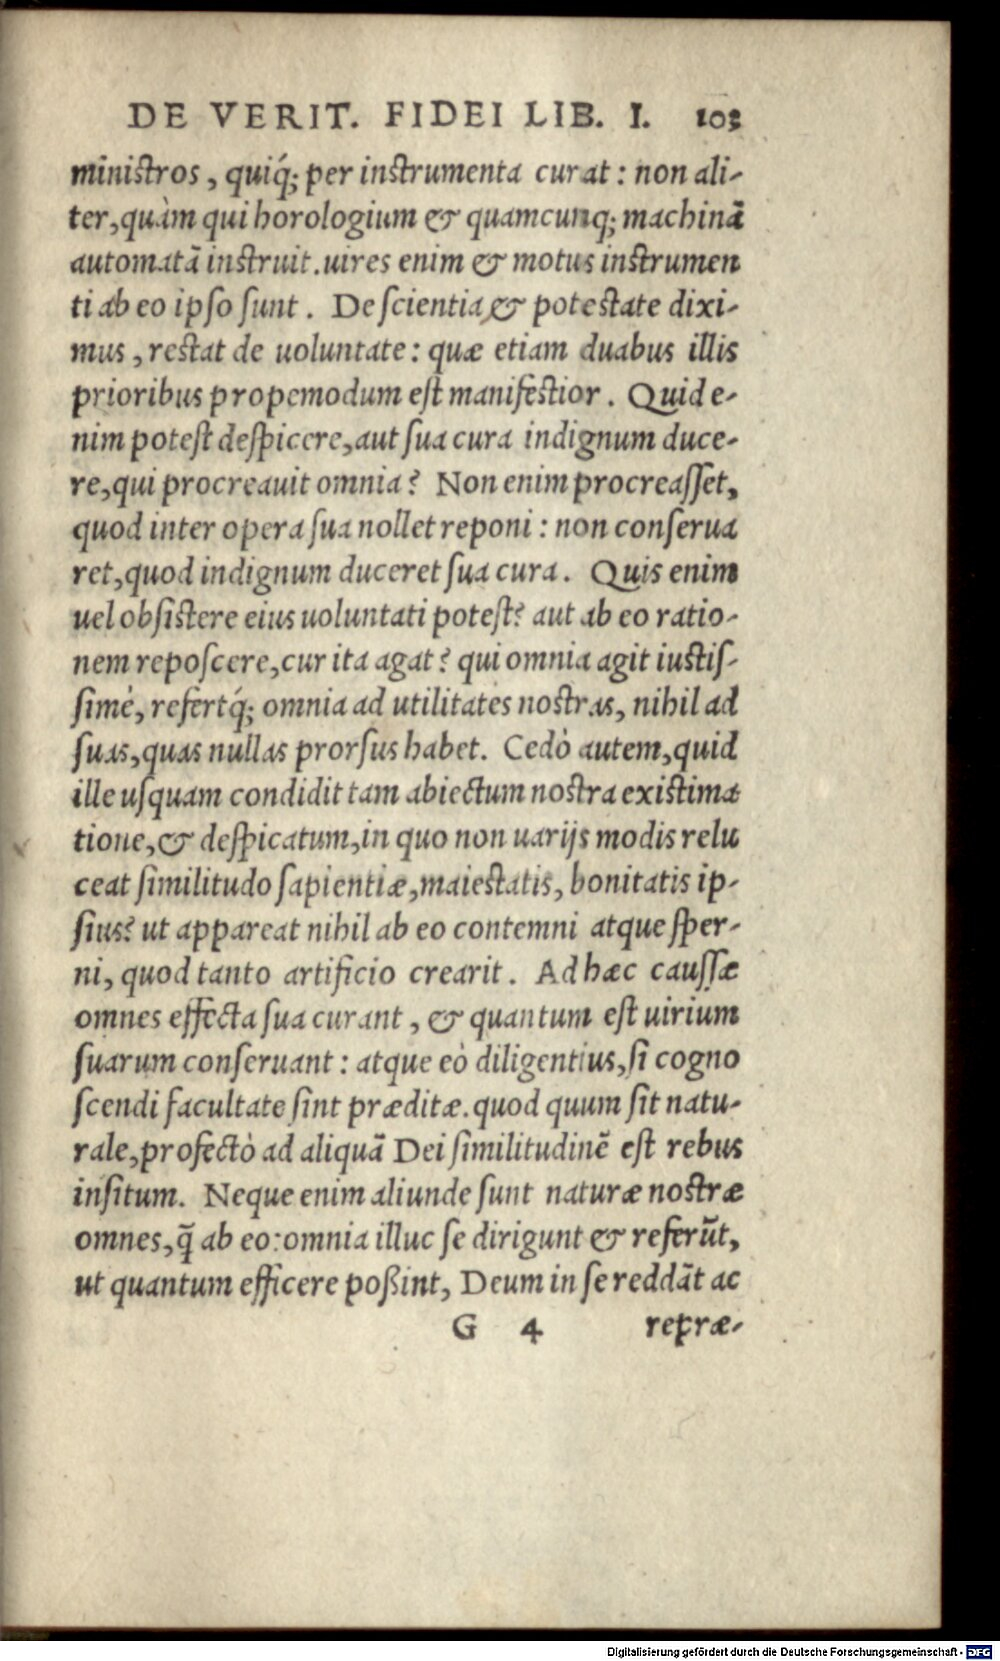 DE VERIT. FIDEI LIB. I. 103
ministros, quiq́; per instrumenta curat: non ali-
ter, quàm qui horologium & quamcunq; machinā
automatā instruit. uires enim & motus instrumen
ti ab eo ipso sunt. De scientia & potestate dixi-
mus, restat de uoluntate: quæ etiam duabus illis
prioribus propemodum est manifestior. Quid e-
nim potest despicere, aut sua cura indignum duce-
re, qui procreauit omnia? Non enim procreasset,
quod inter opera sua nollet reponi: non conserua
ret, quod indignum duceret sua cura. Quis enim
uel obsistere eius uoluntati potest? aut ab eo ratio-
nem reposcere, cur ita agat? qui omnia agit iustis-
simè, refertq́; omnia ad utilitates nostras, nihil ad
suas, quas nullas prorsus habet. Cedò autem, quid
ille usquam condidit tam abiectum nostra existima
tione, & despicatum, in quo non uarijs modis relu
ceat similitudo sapientiæ, maiestatis, bonitatis ip-
sius? ut appareat nihil ab eo contemni atque sper-
ni, quod tanto artificio crearit. Ad hæc caussæ
omnes effecta sua curant, & quantum est uirium
suarum conseruant: atque eò diligentius, si cogno
scendi facultate sint præditæ. quod quum sit natu-
rale, profectò ad aliquā Dei similitudinē est rebus
insitum. Neque enim aliunde sunt naturæ nostræ
omnes, q̄ ab eo: omnia illuc se dirigunt & referūt,
ut quantum efficere poßint, Deum in se reddāt ac
G 4 repræ-
Digitalisierung gefördert durch die Deutsche Forschungsgemeinschaft - DFG